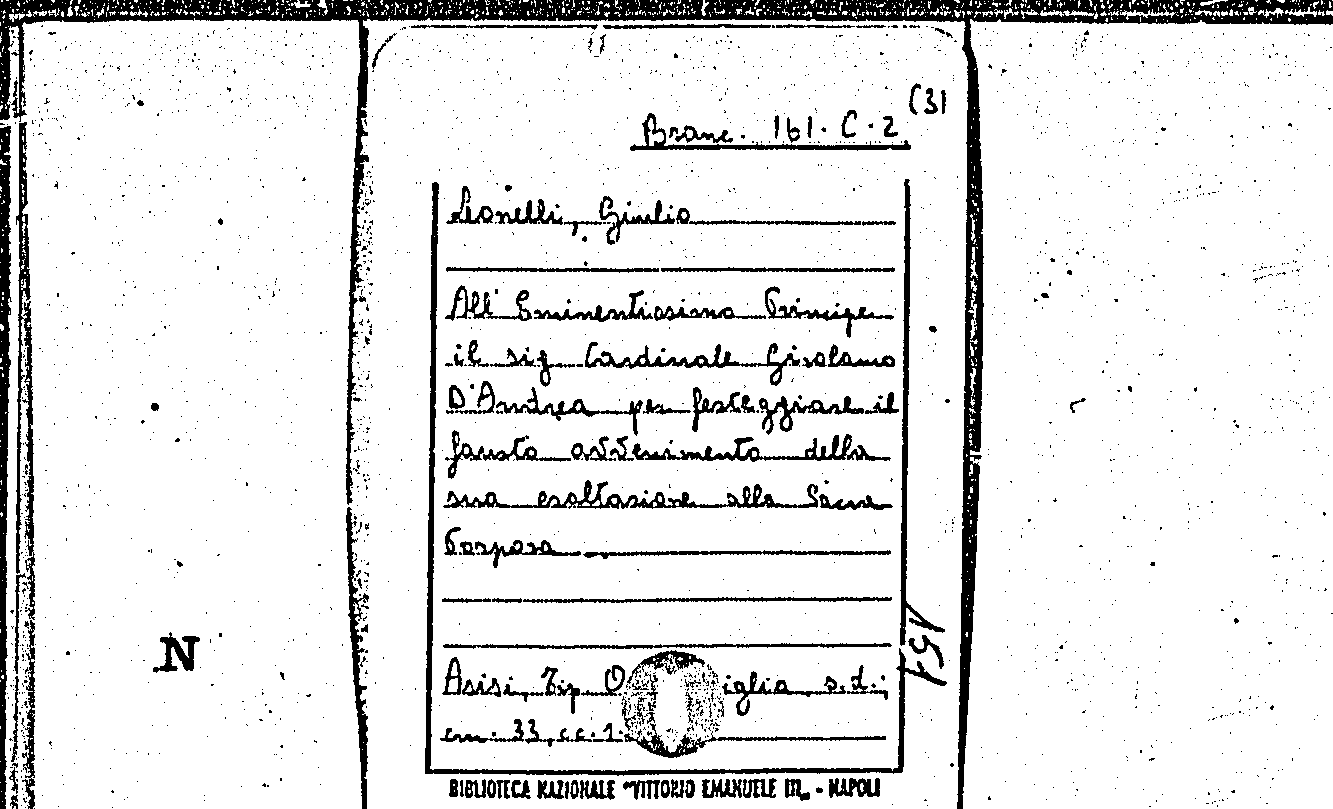 (31
Branc. 161. C. 2
Leonelli, Giulio
All' Eminentissimo Principe
il sig Cardinale Girolamo
D'Andrea per festeggiare il
fausto avvenimento della
sua esaltazione alla Sacra
Porpora
N
Asisi, Tip. O iglia, s.d.;
cm. 33, cc. 1.
BIBLIOTECA NAZIONALE "VITTORIO EMANUELE III„ - NAPOLI